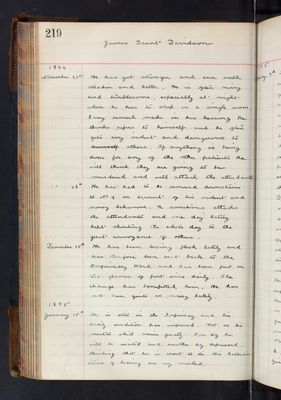 219
James Grant Davidson
1894
November 21st He has got stronger and can walk
steadier and better. He is often noisy
and troublesome, especially at night
when he has to sleep in a single room
Any remark made in his hearing he
thinks refers to himself and he often
gets very violent and dangerous to
others. If anything is being
done for any of the other patients he
will think they are going to be
murdered and will attack the attendants
He has had to be removed downstairs
to No 4 on account of his violent and
noisy behaviour. He sometimes attacks
the attendants and one day lately
kept shouting the whole day to the
great annoyance of others
December 18th He has been losing flesh lately and
has therefore been sent back to the
Infirmary Ward and has been put on
glasses of port wine daily. The
change has benefitted him. He has
not been quite so noisy lately.
1895
January 15th He is still in the Infirmary and his
bodily condition has improved. But as his
mental state varies greatly. One day he
will be excited and another day depressed.
thinking that he is about to die. His
of hearing are very marked.